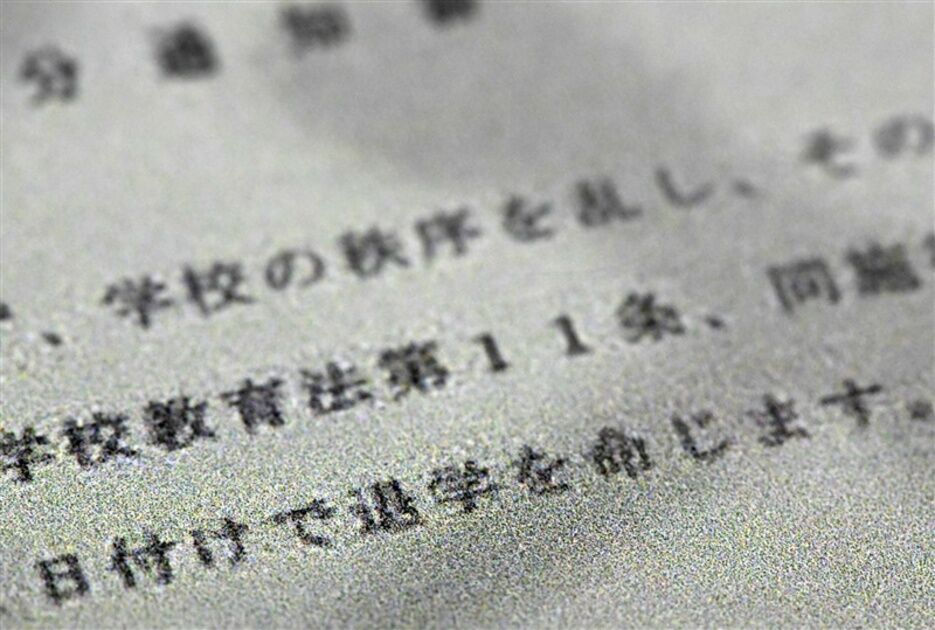 分
、学校の秩序を乱し、その
学校教育法第11条、同施
日付けで退学を命じます。